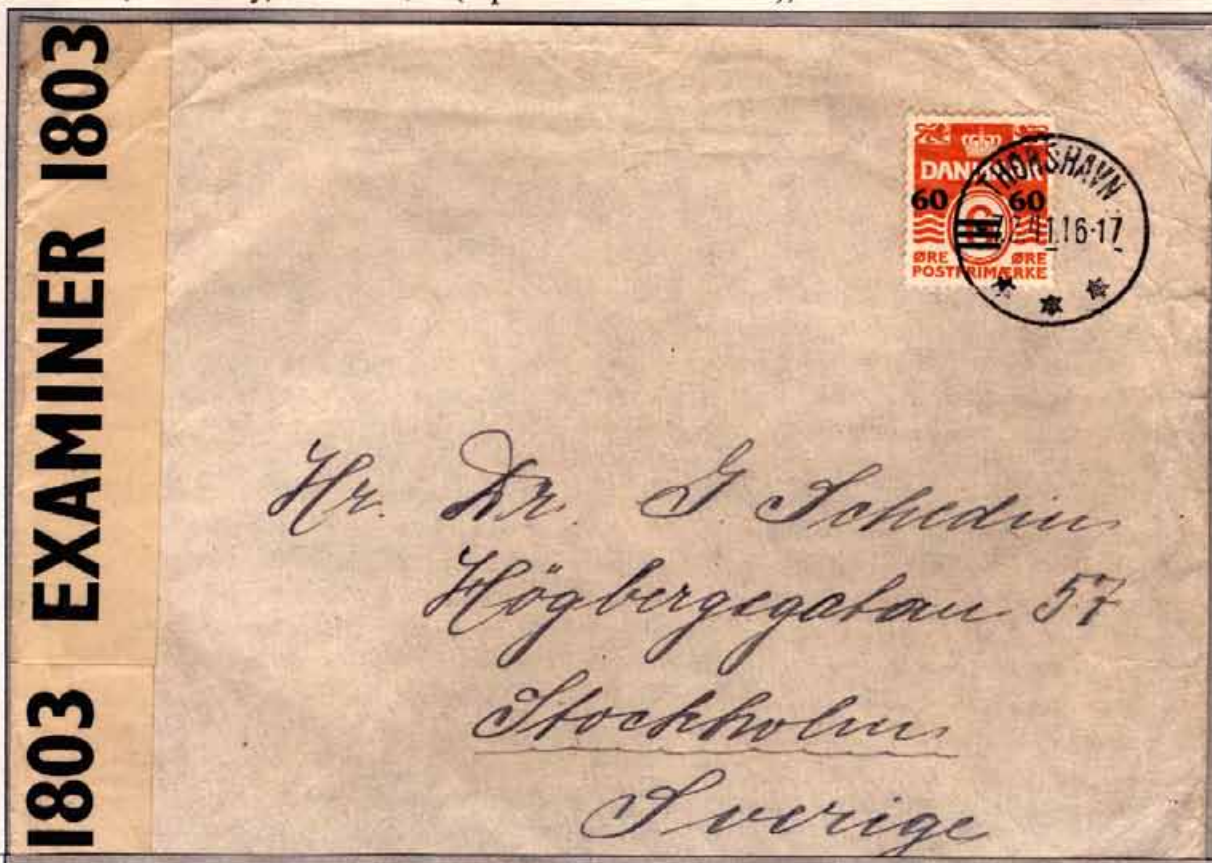 1803 EXAMINER 1803
DANMARK
60 60
6
ØRE ØRE
POSTFRIMÆRKE
THORSHAVN
41.16-17
Hr. Dr. G Schedin
Högbergsgatan 57
Stockholm
Sverige